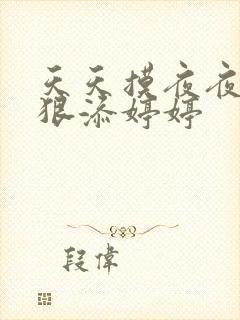 天天摸夜夜
狠添婷婷
段偉